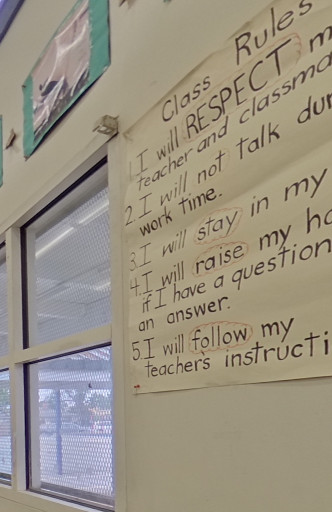 Class Rules
1. I will RESPECT m
teacher and classma
2. I will not talk dur
work time.
3. I will stay in my
4. I will raise my ha
if I have a question
an answer.
5. I will follow my
teacher's instructi